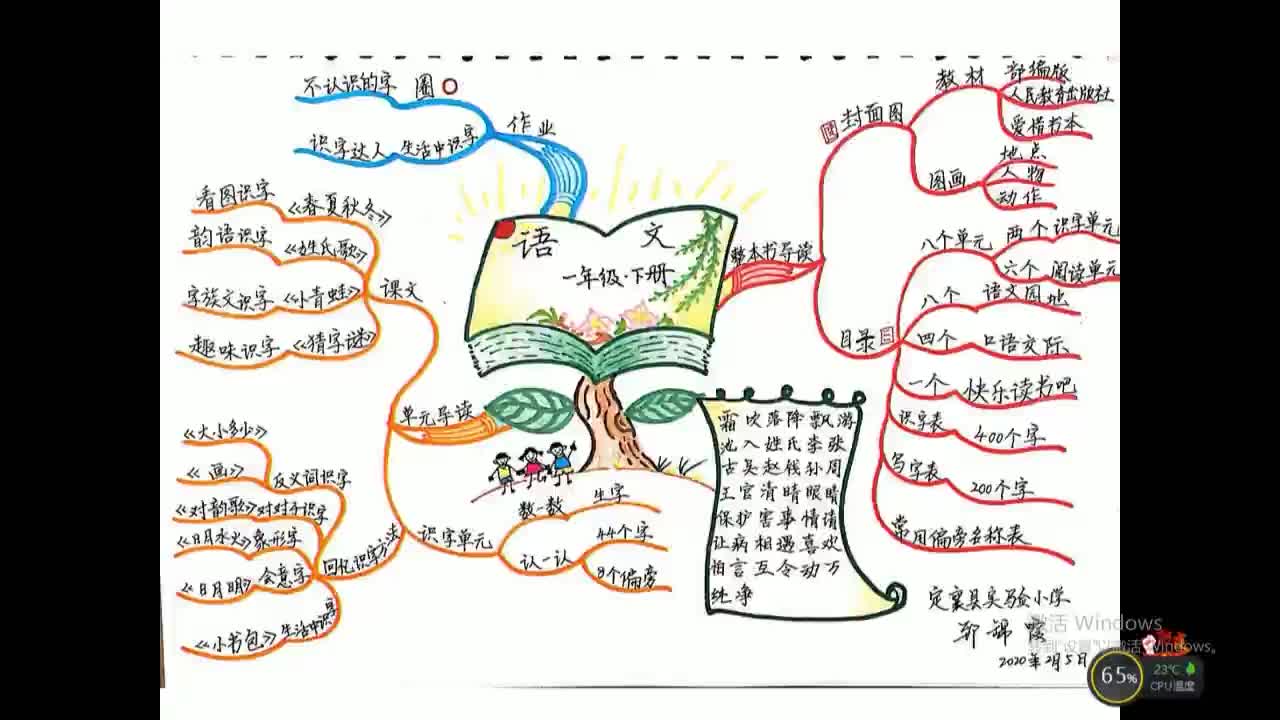 不认识的字 圈
作业
识字达人 生活中识字
语文
一年级·下册
整本书导读
封面图
教材
部编版
人民教育出版社
爱惜书本
图画
地点
人物
动作
目录
八个单元
两个识字单元
六个阅读单元
八个 语文园地
四个 口语交际
一个 快乐读书吧
识字表 400个字
写字表 200个字
常用偏旁名称表
课文
看图识字 《春夏秋冬》
韵语识字 《姓氏歌》
字族文识字 《小青蛙》
趣味识字 《猜字谜》
单元导读
识字单元
数一数 生字
认一认
44个字
8个偏旁
回忆识字方法
《大小多少》
《画》 反义词识字
《对韵歌》 对对子识字
《日月水火》 象形字
《日月明》 会意字
《小书包》 生活中识字
霜吹落降飘游
池入姓氏李张
古吴赵钱孙周
王官清晴眼睛
保护害事情请
让病相遇喜欢
怕言互令动万
纯净
定襄县实验小学
郭锦霞
2020年2月5日
激活 Windows
转到"设置"以激活 Windows。
65%
23℃
CPU温度